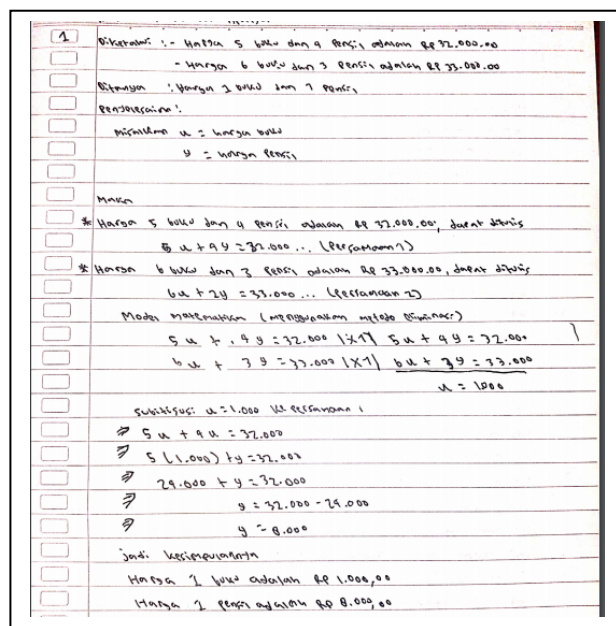 1
Diketahui : - Harga 5 buku dan 4 pensil adalah Rp 32.000.00
- Harga 6 buku dan 3 pensil adalah Rp 33.000.00
Ditanya : Harga 1 buku dan 1 pensil
Penyelesaian :
misalkan x = harga buku
y = harga pensil
Maka
* Harga 5 buku dan 4 pensil adalah Rp 32.000.00, dapat ditulis
5x + 4y = 32.000 ... (Persamaan 1)
* Harga 6 buku dan 3 pensil adalah Rp 33.000.00, dapat ditulis
6x + 2y = 33.000 ... (Persamaan 2)
Model matematika (menggunakan metode eliminasi)
5x + 4y = 32.000 |x1| 5x + 4y = 32.000
6x + 3y = 33.000 |x1| 6x + 3y = 33.000
x = 1000
Subsitusi x = 1.000 ke persamaan 1
⇒ 5x + 4x = 32.000
⇒ 5 (1.000) + y = 32.000
⇒ 24.000 + y = 32.000
⇒ y = 32.000 - 24.000
⇒ y = 8.000
jadi kesimpulannya
Harga 1 buku adalah Rp 1.000,00
Harga 1 pensil adalah Rp 8.000,00